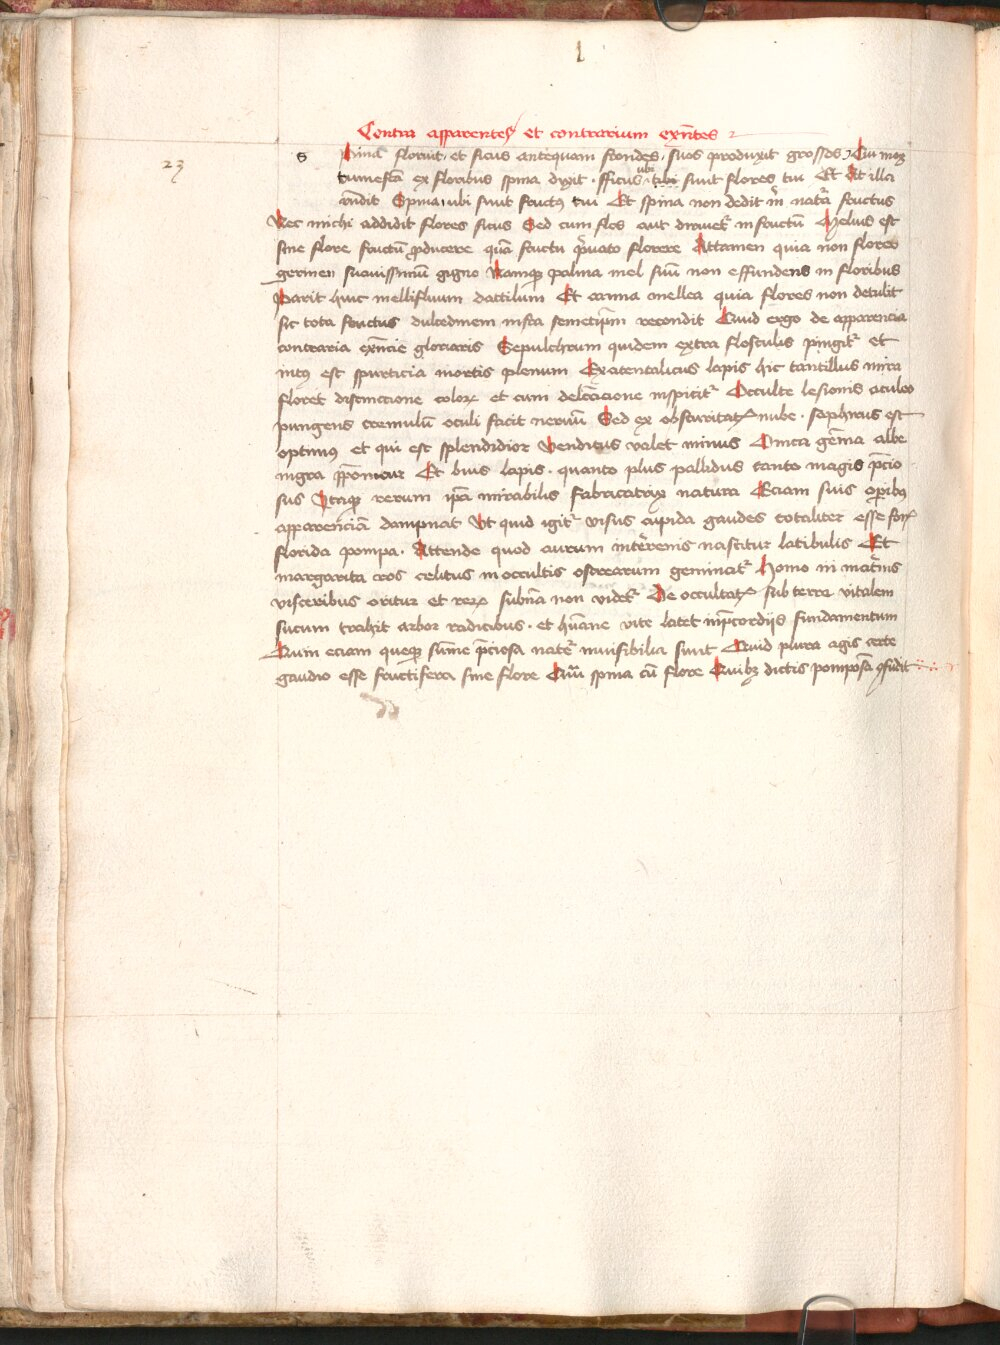 l
Contra apparentes et contrarium exn̄tes
23
s pina floruit · et ficus antequam frondes · suos produxit grossos Cui mox
tumefcā ex floribus spina dixit · fficus ubi sunt flores tui Et At illa
rn̄dit Spina ubi sunt fructꝰ tui Et spina non dedit m̄ natā fructus
Nec michi addidit flores ficus Sed cum flos aut in fructū Melius est
sine flore fructū ꝓducere quā fructu pͥuato florere Attamen quia non floreo
germen suauissimū gigno Namqꝫ palma mel suū non effundens in floribus
Parit huic mellifluum dactilum Et canna mellea quia flores non detulit
sic tota fructus dulcedinem infra semetip̄m recondit Quid ergo de apparencia
contraria exn̄cie gloriaris Sepulchrum quidem extra flosculis pingitᷣ et
intꝰ est spurticia mortis plenum Exatentalicus lapis hic tantillus mira
floret distinctione coloꝝ et cum delc̄acione inspicitᷣ Occulte lesionis aculeo
pungens tremulū oculi facit neruū Sed ex obscuritatꝭ nube · saphirus est
optimꝰ et qui est splendidior venditus valet minus Cuncta gēma albe
nigra p̄ponitur Et bius lapis · quanto plus pallidus tanto magis p̄cio
sus Vtiqꝫ rerum ip̄a mirabilis fabricatrix natura Eciam suis opibꝰ
apparenciā dampnat Vt quid igitᷣ visus cupida gaudes totaliter esse
florida pompa · Attende quod aurum in terrenis nascitur latibulis Et
margarita ros celitus in occultis ostrearum geminatᷣ Homo in mat̄nis
visceribus oritur et reꝝ subn̄a non videtᷣ De occultatꝭ sub terra vitalem
sucum trahit arbor radicibus · et hūane vite latet in p̄cordijs fundamentum
Cum eciam queqꝫ sūme p̄ciosa natᷣe inuisibilia sunt Quid plura agis certe
gaudio esse fructifera sine flore Quā spina cū flore Quibꝫ dictis pomposā ꝯfudit